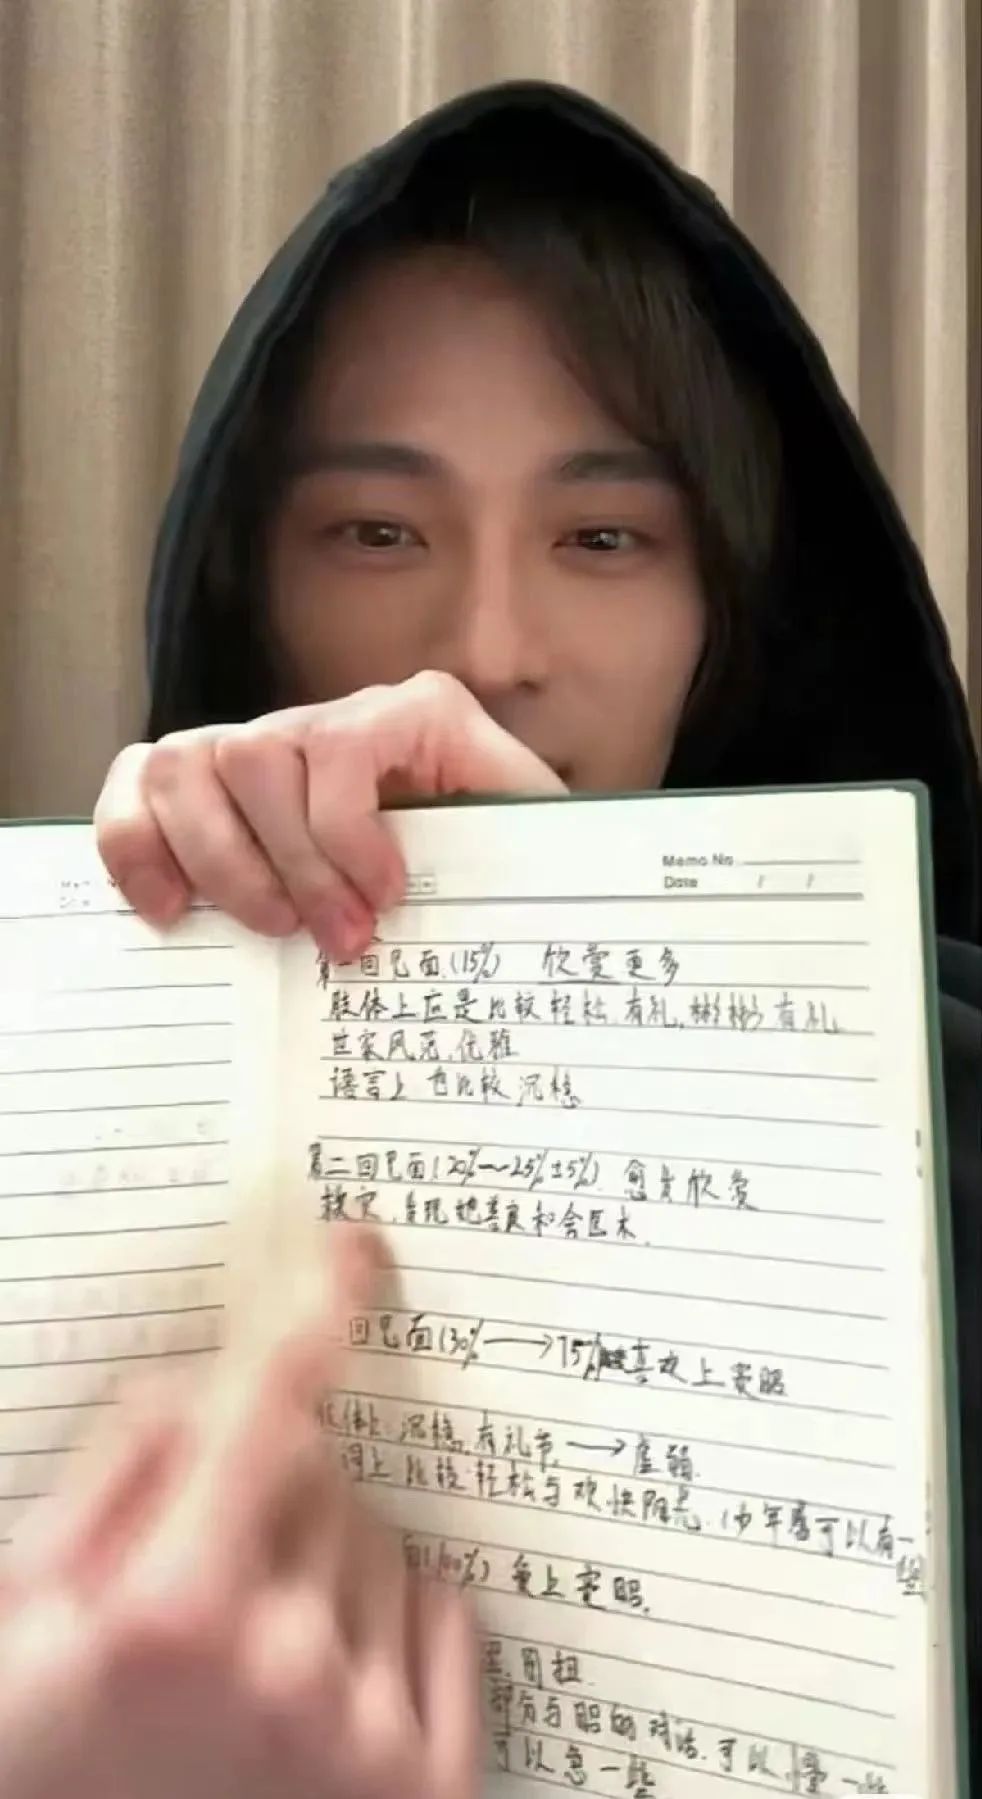 Memo No
Date / /
第一回见面.(15%) 欣赏更多
肢体上应是比较轻松.有礼.彬彬有礼
世家风范.优雅
语言上 也比较沉稳
第二回见面(20%～25%±5%).愈发欣赏
救灾.发现她善良和会医术.
回见面(30%→75%)喜欢上窦昭
体上:沉稳.有礼节.→虚弱.
词上 比较轻松与欢快 (少年感可以有一些
(100%) 爱上窦昭.
部分与昭的对话.可以慢一些
可以急一些